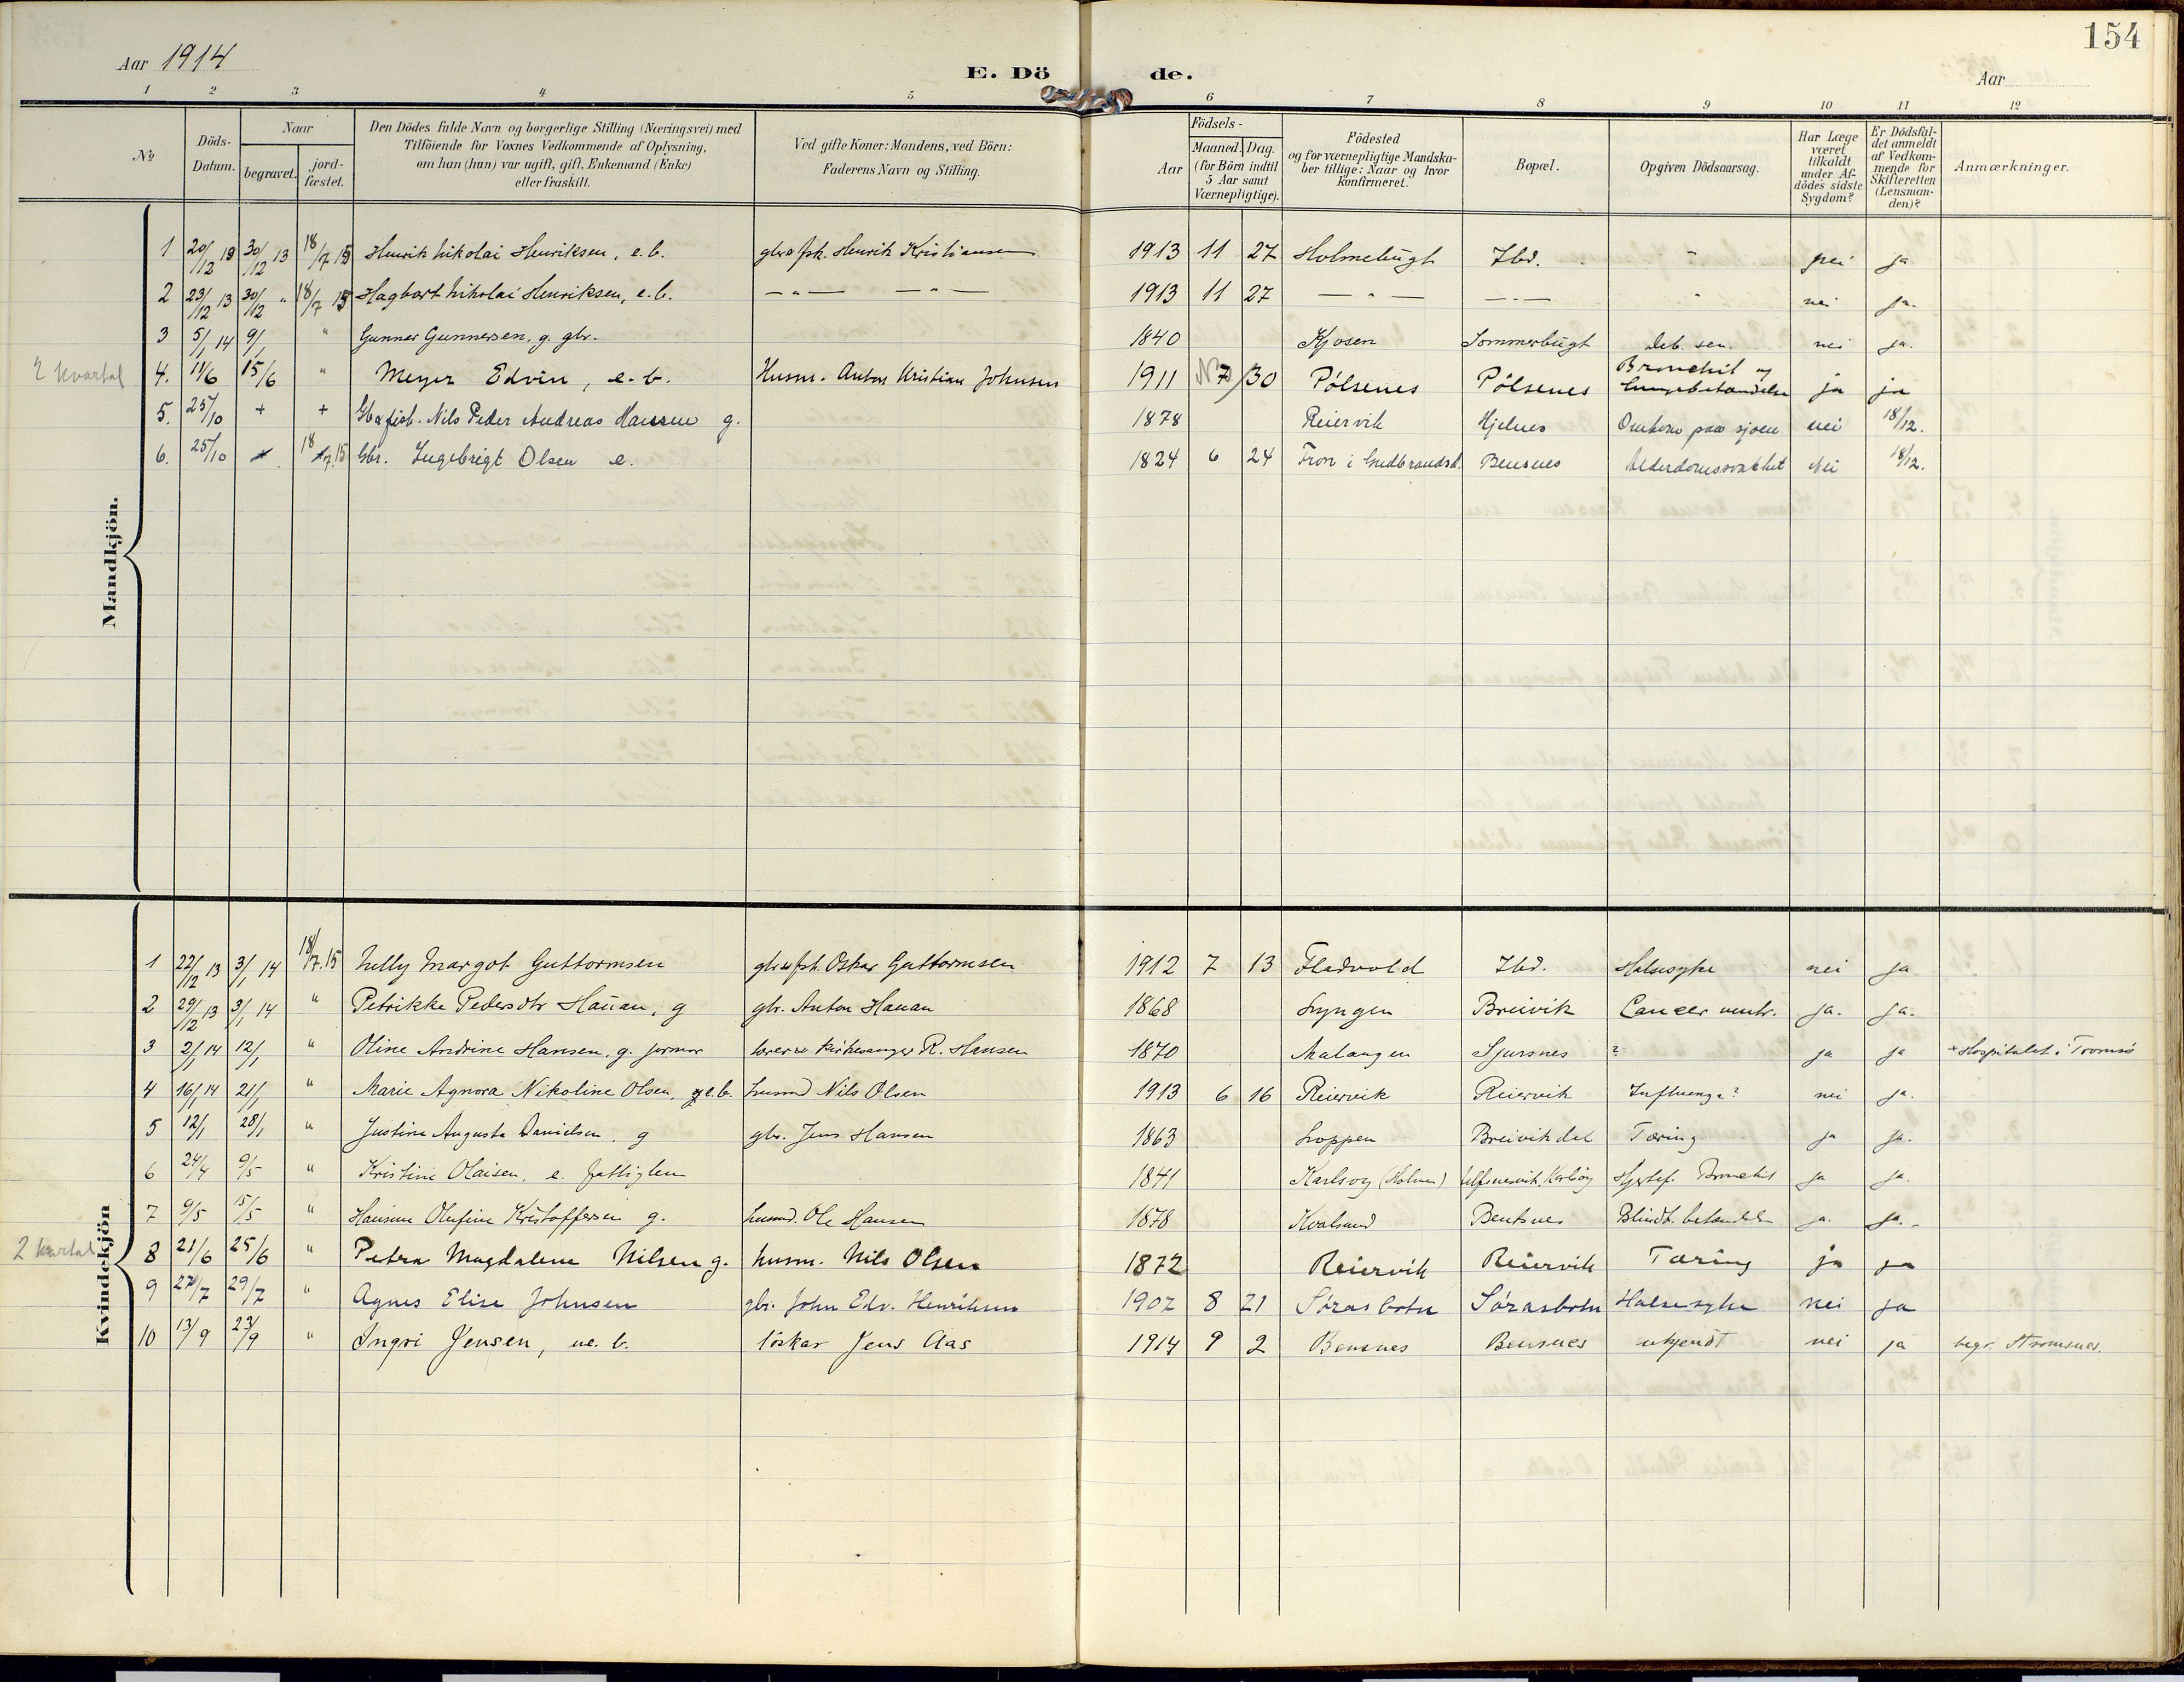 154
Aar 1914
E. Dö de.
Aar
1 2 3 4 5 6 7 8 9 10 11 12
№
Döds-Datum.
Naar
begravet.
jord-fæstet.
Den Dödes fulde Navn og borgerlige Stilling (Næringsvei) med
Tilföiende for Voxnes Vedkommende af Oplysning,
om han (hun) var ugift, gift, Enkemand (Enke)
eller fraskilt.
Ved gifte Koner: Mandens, ved Börn:
Faderens Navn og Stilling.
Födsels-
Aar
Maaned. Dag.
(for Börn indtil
5 Aar samt
Værnepligtige).
Födested
og for værnepligtige Mandska-
ber tillige: Naar og hvor
konfirmeret.
Bopæl.
Opgiven Dödsaarsag.
Har Læge
været
tilkaldt
under Af-
dödes sidste
Sygdom?
Er Dödsfal-
det anmeldt
af Vedkom-
mende for
Skifteretten
(Lensman-
den)?
Anmærkninger.
Mandkjön.
1 20/12 13 30/12 13 18/7 15 Henrik Nikolai Henriksen, e.b. gbr o fsk. Henrik Kristiansen 1913 11 27 Holmebugt Ibd. " nei ja
2 23/12 13 30/12 " 18/7 15 Hagbart Nikolai Henriksen, e.b. —"— —"— 1913 11 27 —"— —"— " nei ja.
3 5/1 14 9/1 " Gunnar Gunnersen, g. gbr. 1840 Kjosen Sommerbugt deb. sen. nei ja.
2 kvartal 4. 11/6 15/6 " Meyer Edvin, e.b. Husm. Anton Kristian Johnsen 1911 7/30 Pólsenes Pólsenes Bronchit og Lungebetændelse ja ja
5. 25/10 + + Gbr fisk. Nils Peder Andreas Hansen g. 1878 Reiervik Hjelnes Omkom paa sjöen nei 18/12.
6. 25/10 18/7.15 Gbr. Ingebrigt Olsen e. 1824 6 24 Fron i Gudbrandsd. Bensnes Alderdomssvakhet Nei 18/12.
Kvindekjön
1 22/12 13 3/1 14 18/7.15 Nelly Margot Guttormsen gbr o fsk. Oskar Guttormsen 1912 7 13 Fladvold Ibd. Halssyke nei ja
2 29/12 13 3/1 14 " Petrikke Pedersdtr Hauan, g gbr. Anton Hauan 1868 Lyngen Breivik Cancer ventr. ja. ja.
3 2/1 14 12/1 " Oline Andrine Hansen, g. jormor lærer & kirkesanger R. Hansen 1870 Malangen Sjursnes ? ja ja + Hospitalet i Tromsö
4 16/1 14 21/1 " Marie Agnora Nikoline Olsen, e.b. husmd Nils Olsen 1913 6 16 Reiervik Reiervik Influenza? nei ja.
5 12/1 28/1 " Justine Augusta Danielsen, g gbr. Jens Hansen 1863 Loppen Breivikdal Tæring ja ja.
6 24/4 9/5 " Kristine Olaisen, e. fattiglem 1841 Karlsoy (Holmen) Karlsöy Hjertef. Bronchit ja ja.
7 9/5 15/5 " Hansine Olufine Kristoffersen g. husmd. Ole Hansen 1878 Kvalsund Bentsnes Blindt. betændelse ja. ja.
2 kvartal 8 21/6 25/6 " Petra Magdalene Nilsen g. husm. Nils Olsen 1872 Reiervik Reiervik Tæring ja ja
9 27/7 29/7 " Agnes Elise Johnsen gbr. John Edv. Henriksen 1907 8 21 Sórasbotn Sórasbotn Halssyke nei ja
10 13/9 23/9 " Ingri Jensen, ue. b. lóskar Jens Aas 1914 9 2 Bensnes Bensnes ukjendt nei ja begr. Stromsnes.